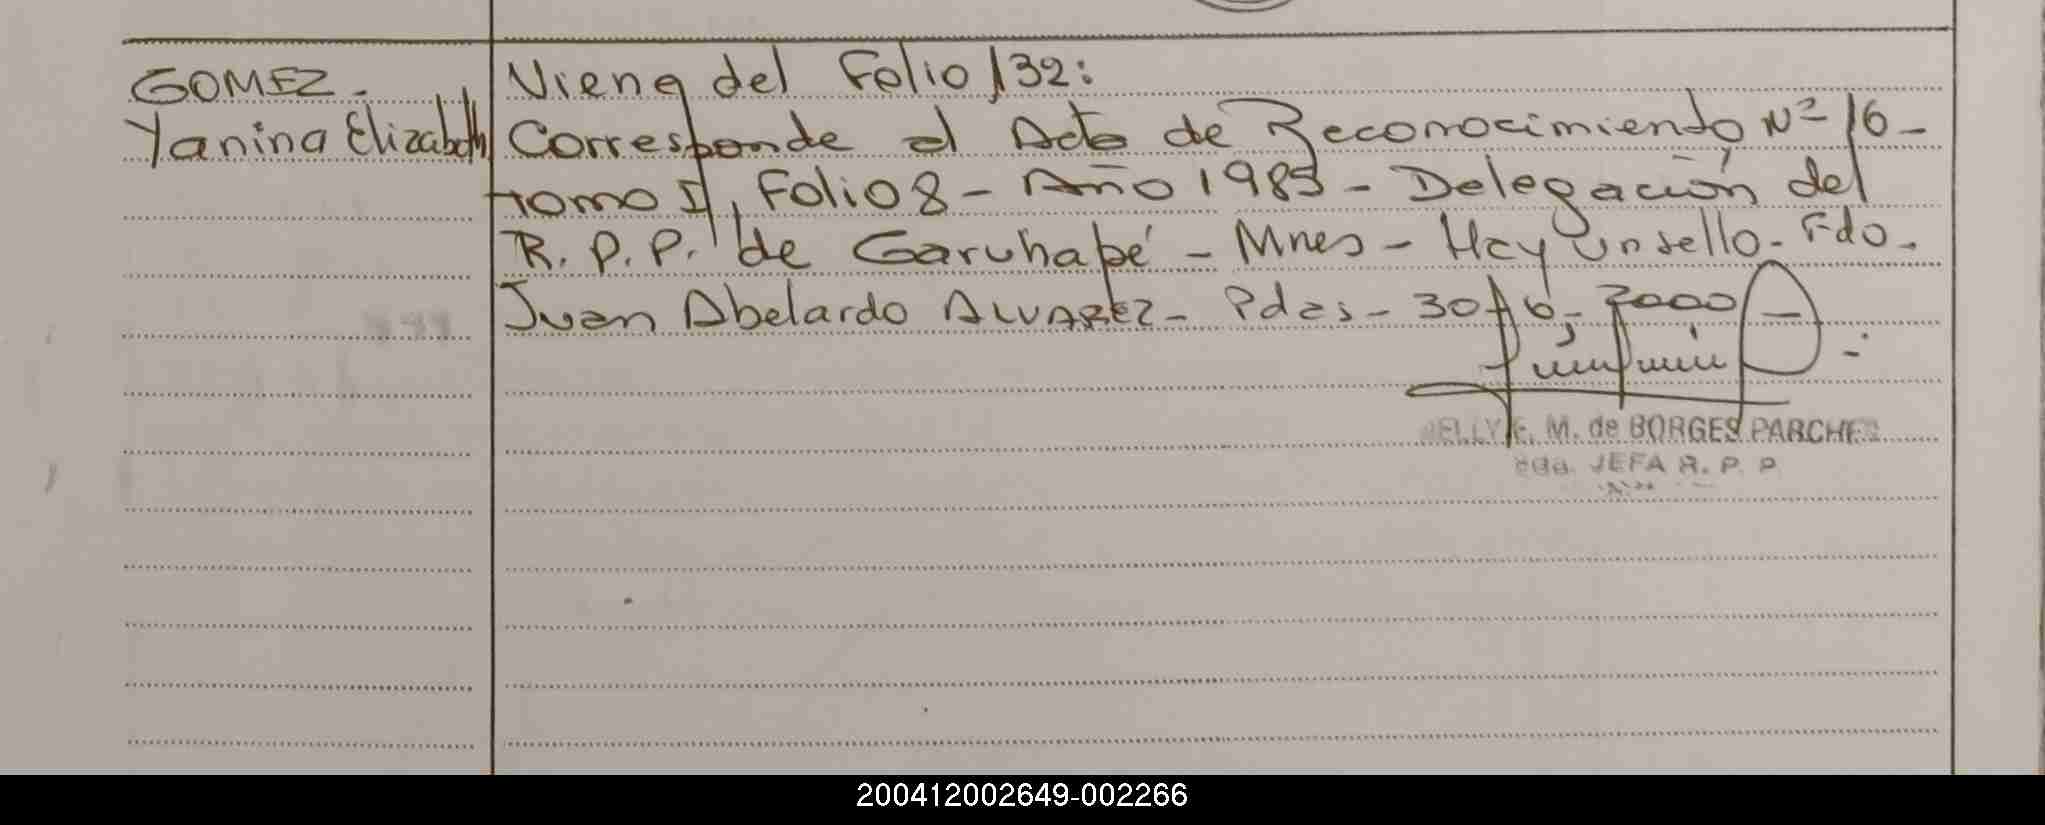 GOMEZ.
Yanina Elizabeth
Viene del Folio 132:
Corresponde al Acta de Reconocimiento Nº 16 -
tomo I, Folio 8 - Año 1985 - Delegación del
R. P. P. de Garuhapé - Mnes - Hay un sello. Fdo.
Juan Abelardo ALVAREZ - Pdas - 30-6-2000
NELLY E. M. de BORGES PARCHES
JEFA R. P. P.
200412002649-002266